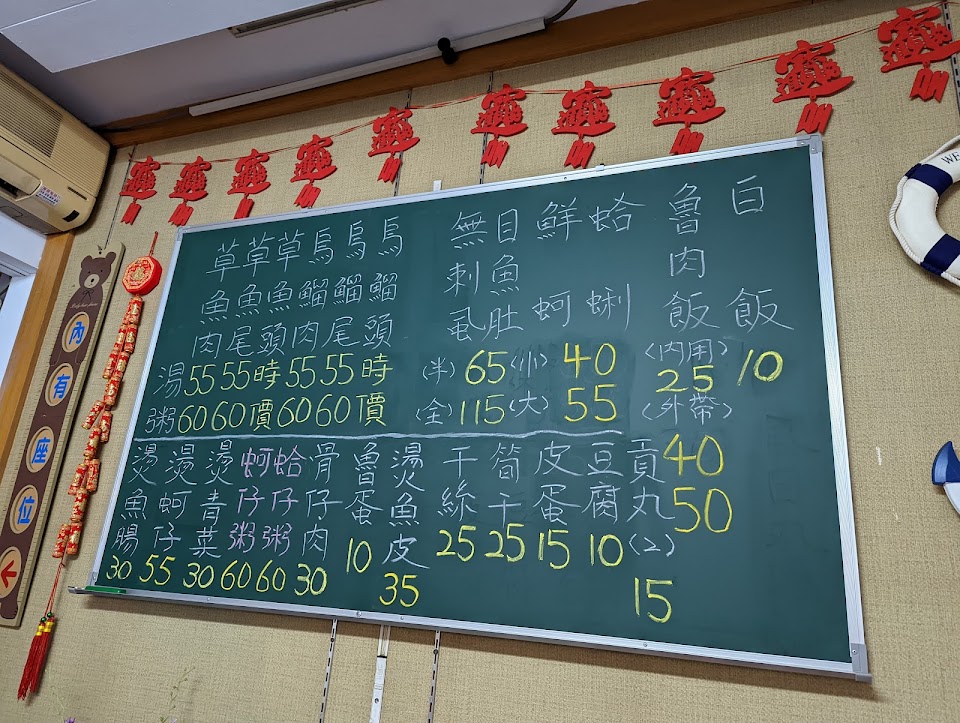 內有座位
草魚肉
草魚尾
草魚頭
烏鰡肉
烏鰡尾
烏鰡頭
湯 55 55 時 55 55 時
粥 60 60 價 60 60 價
無刺虱
目魚肚
(半) 65
(全) 115
鮮蚵
蛤蜊
(小) 40
(大) 55
魯肉飯
(內用)
25
(外帶)
40
50
白飯
10
燙魚腸 30
燙蚵仔 55
燙青菜 30
蚵仔粥 60
蛤仔粥 60
骨仔肉 30
魯蛋 10
燙魚皮 35
干絲 25
筍干 25
皮蛋 15
豆腐 10
貢丸(2) 15
WE